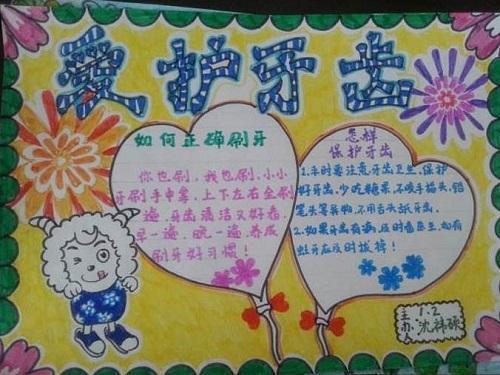 愛护牙齿
如何正确刷牙
你也刷,我也刷,小小
牙刷手中拿,上下左右全刷
遍,牙齿清洁又好看,
早一遍,晚一遍,养成
刷牙好习惯!
怎样
保护牙齿
1.平时要注意牙齿卫生,保护
好牙齿,少吃糖果,不咬手指头,铅
笔头等异物,不用舌头舐牙齿.
2.如果牙齿有病,及时看医生,如有
蛀牙应及时拔掉!
主办人
1.2
沈祎硕